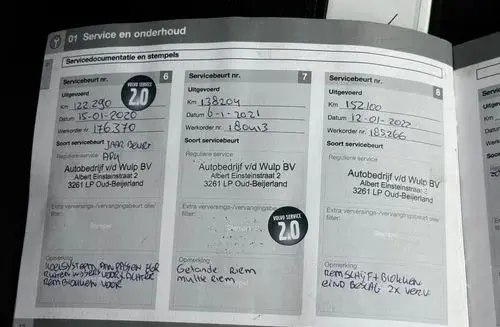 01 Service en onderhoud
Servicedocumentatie en stempels
Servicebeurt nr. 6
Uitgevoerd
Km 122.290
Datum 15-01-2020
Werkorder nr. 176370
Soort servicebeurt
JAAR Beurt
Reguliere service APK
Autobedrijf v/d Wulp BV
Albert Einsteinstraat 2
3261 LP Oud-Beijerland
Extra verversings-/vervangingsbeurt olie/
filter:
Stempel
Opmerking
KOELSYSTEEM
REMBLOKKEN VOOR
VOLVO SERVICE
2.0
Servicebeurt nr. 7
Uitgevoerd
Km 138204
Datum 6-1-2021
Werkorder nr.
Soort servicebeurt
Reguliere service
Autobedrijf v/d Wulp BV
Albert Einsteinstraat 2
3261 LP Oud-Beijerland
Extra verversings-/vervangingsbeurt olie/
filter:
VOLVO SERVICE
2.0
Opmerking
Getande Riem
multie Riem
Servicebeurt nr. 8
Uitgevoerd
Km 152100
Datum 12-01-2022
Werkorder nr. 185266
Soort servicebeurt
Reguliere service
Autobedrijf v/d Wulp BV
Albert Einsteinstraat 2
3261 LP Oud-Beijerland
Extra verversings-/vervangingsbeurt olie/
filter:
Stempel
Opmerking
REMSCHIJF + BLOKKEN